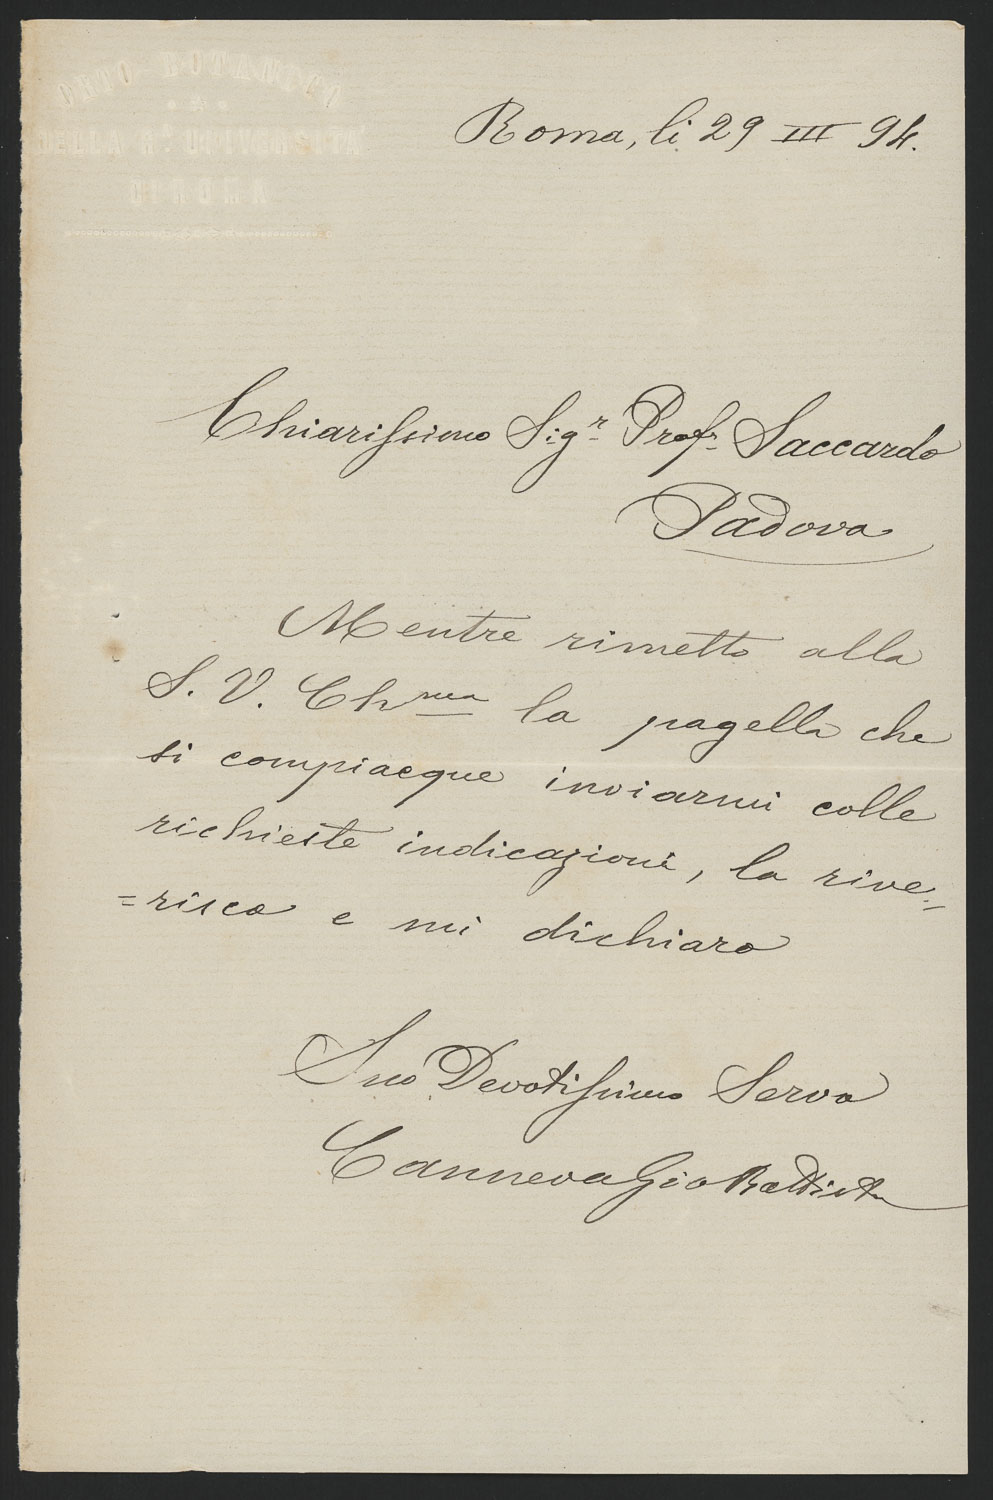 ORTO BOTANICO
DELLA R.ª UNIVERSITÀ
DI ROMA
Roma, li 29 III 94.
Chiarissimo Sigr Prof. Saccardo
Padova
Mentre rimetto alla
S. V. Chma la pagella che
si compiacque inviarmi colle
richieste indicazioni, la rive=
=risco e mi dichiaro
Suo Devotissimo Servo
Canneva Gio Battista